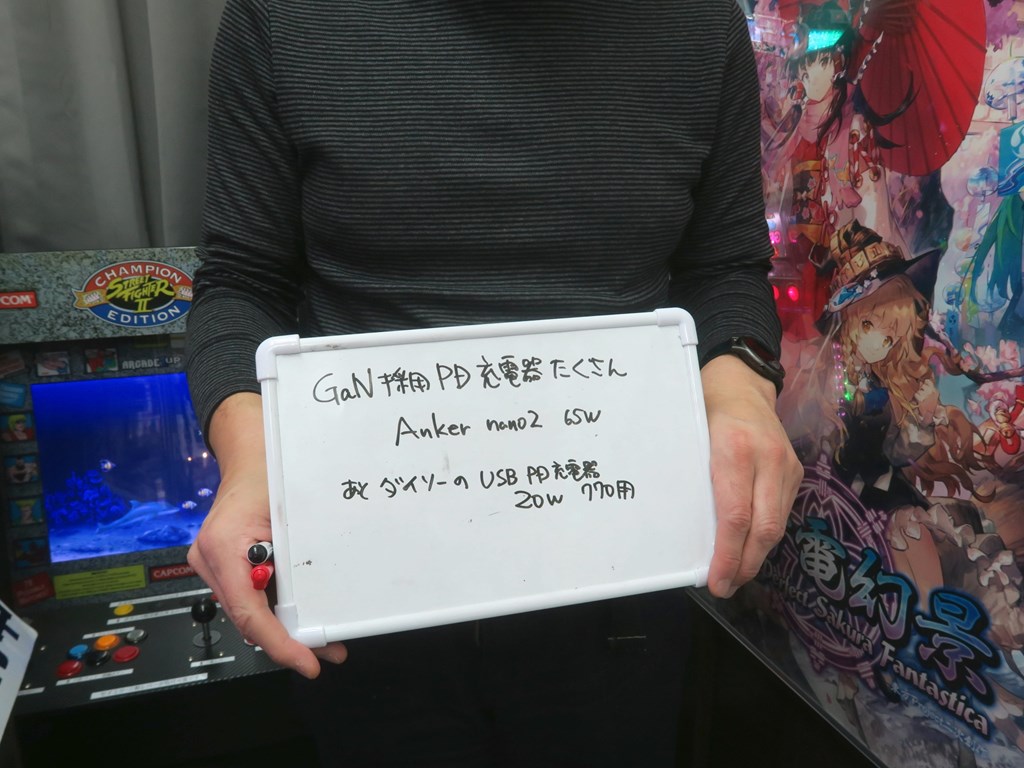 GaN 採用 PD 充電器 たくさん
Anker nano2 65W
あと ダイソーの USB PD 充電器
20W 770用
CHAMPION
STREET FIGHTER
II
EDITION
COM
ARCADE
CAPCOM
幻景
Perfect Sakura Fantastica